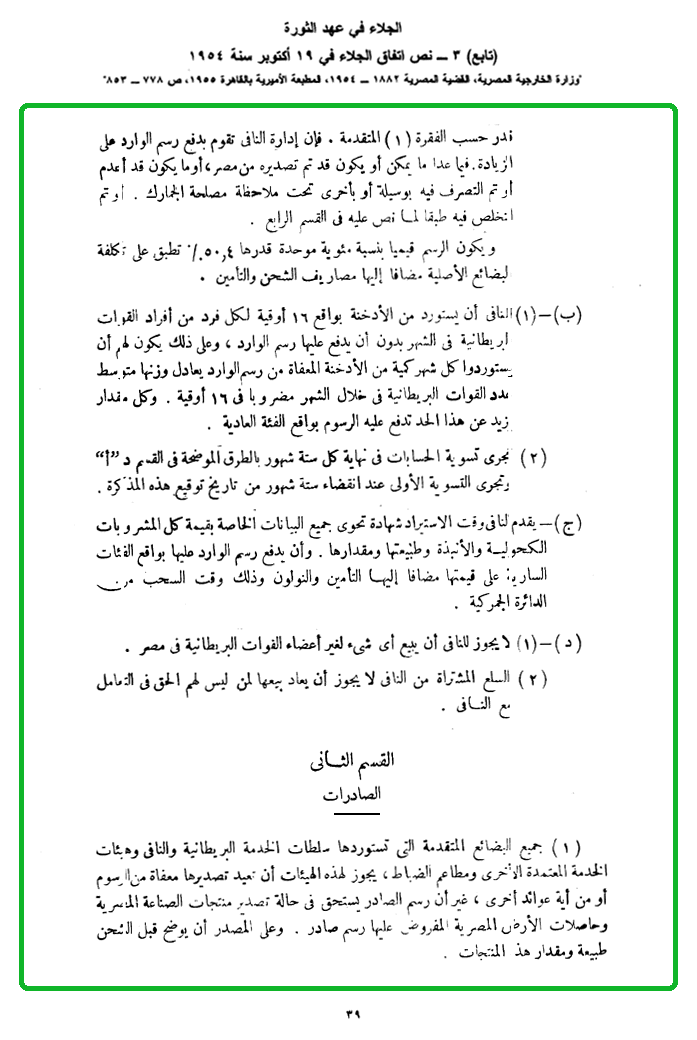 الجلاء في عهد الثورة
(تابع) ٣ ــ نص اتفاق الجلاء في ١٩ أكتوبر سنة ١٩٥٤
"وزارة الخارجية المصرية، القضية المصرية ١٨٨٢ ــ ١٩٥٤، المطبعة الأميرية بالقاهرة ١٩٥٥، ص ٧٧٨ ــ ٨٥٣"
قدر حسب الفقرة (١) المتقدمة . فإن إدارة النافى تقوم بدفع رسم الوارد على
الزيادة . فيما عدا ما يمكن أو يكون قد تم تصديره من مصر ، أو ما يكون قد أعدم
أو تم التصرف فيه بوسيلة أو بأخرى تحت ملاحظة مصلحة الجمارك . أو تم
التخلص فيه طبقا لما نص عليه فى القسم الرابع .
و يكون الرسم قيميا بنسبة مئوية موحدة قدرها ٥٠,٤٪ تطبق على تكلفة
لبضائع الأصلية مضافا إليها مصاريف الشحن والتأمين .
(ب) – (١) النافى أن يستورد من الأدخنة بواقع ١٦ أوقية لكل فرد من أفراد القوات
لبريطانية فى الشهر بدون أن يدفع عليها رسم الوارد ، وعلى ذلك يكون لهم أن
يستوردوا كل شهر كمية من الأدخنة المعفاة من رسم الوارد يعادل وزنها متوسط
عدد القوات البريطانية فى خلال الشهر مضروبا فى ١٦ أوقية . وكل مقدار
زيد عن هذا الحد تدفع عليه الرسوم بواقع الفئة العادية .
(٢) تجرى تسوية الحسابات فى نهاية كل ستة شهور بالطرق الموضحة فى القسم د "أ"
وتجرى التسوية الأولى عند انقضاء ستة شهور من تاريخ توقيع هذه المذكرة .
(ج) – يقدم لنافى وقت الاستيراد شهادة تحوى جميع البيانات الخاصة بقيمة كل المشروبات
الكحولية والأنبذة وطبيعتها ومقدارها . وأن يدفع رسم الوارد عليها بواقع الفئات
السارية على قيمتها مضافا إليها التأمين والنولون وذلك وقت السحب من
الدائرة الجمركية .
(د) – (١) لا يجوز للنافى أن يبيع أى شىء لغير أعضاء القوات البريطانية فى مصر .
(٢) السلع المشتراة من النافى لا يجوز أن يعاد بيعها لمن ليس لهم الحق فى التعامل
مع النافى .
القسم الثانى
الصادرات
(١) جميع البضائع المتقدمة التى تستوردها سلطات الخدمة البريطانية والنافى وهيئات
الخدمة المعتمدة الأخرى ومطاعم الضباط ، يجوز لهذه الهيئات أن تعيد تصديرها معفاة من الرسوم
أو من أية عوائد أخرى ، غير أن رسم الصادر يستحق فى حالة تصدير منتجات الصناعة المصرية
وحاصلات الأرض المصرية المفروض عليها رسم صادر . وعلى المصدر أن يوضح قبل الشحن
طبيعة ومقدار هذ المنتجات .
٣٩